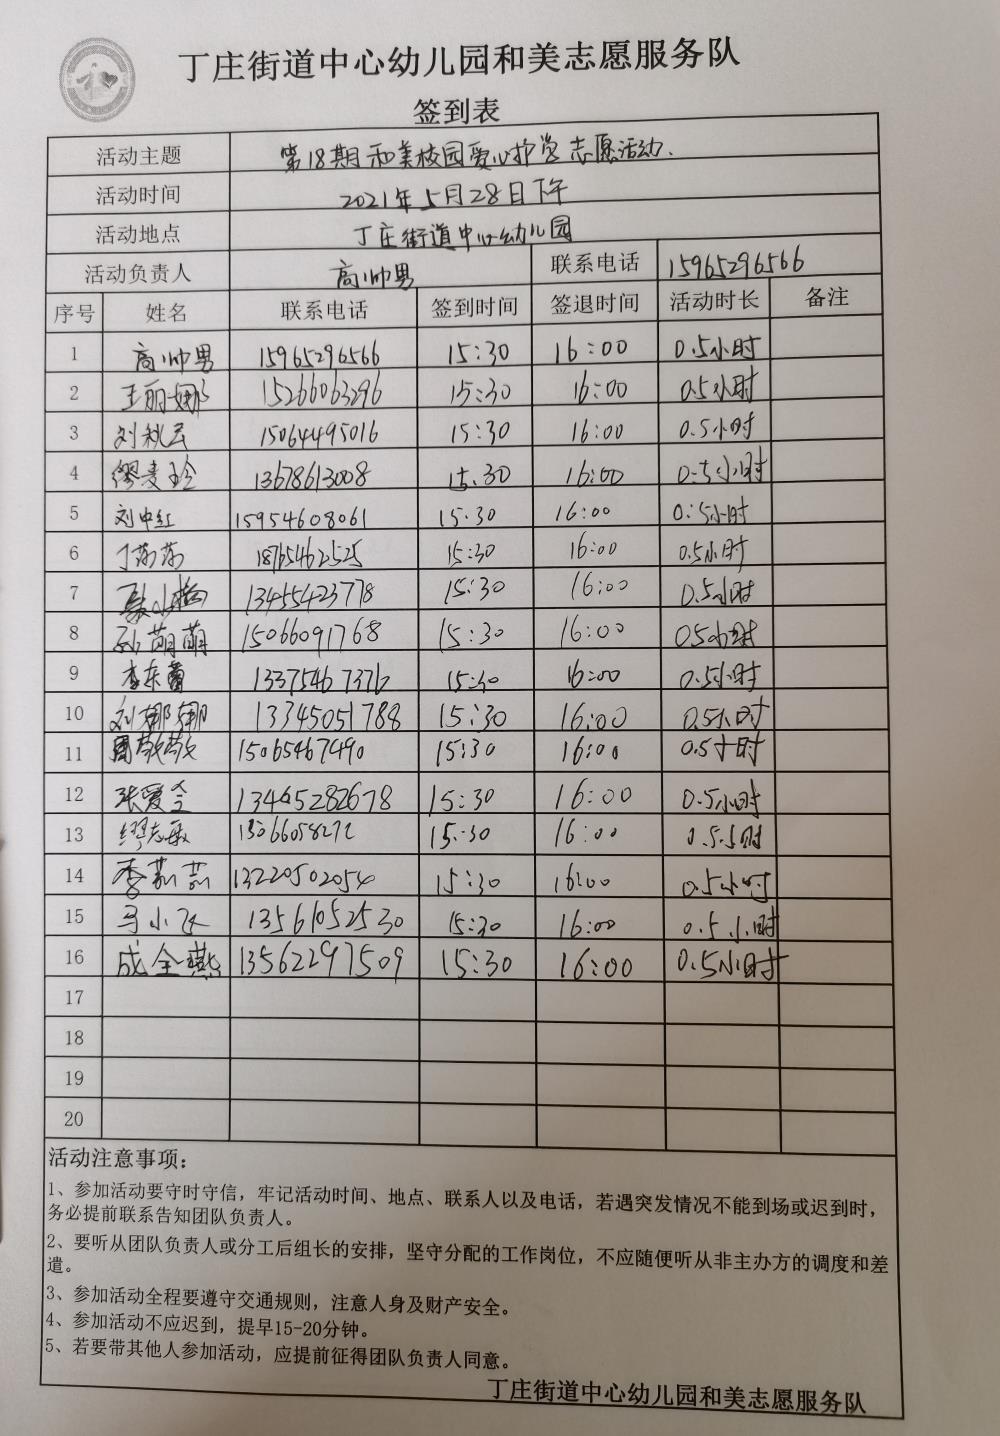 丁庄街道中心幼儿园和美志愿服务队
签到表
活动主题 第18期和美校园爱心护学志愿活动.
活动时间 2021年5月28日下午
活动地点 丁庄街道中心幼儿园
活动负责人 高帅男 联系电话 15965296566
序号 姓名 联系电话 签到时间 签退时间 活动时长 备注
1 高帅男 15965296566 15:30 16:00 0.5小时
2 王丽娜 15266063296 15:30 16:00 0.5小时
3 刘秋云 15064495016 15:30 16:00 0.5小时
4 缪麦玲 13678613008 15:30 16:00 0.5小时
5 刘中红 15954608061 15:30 16:00 0.5小时
6 丁荷荷 18765462525 15:30 16:00 0.5小时
7 13455423778 15:30 16:00 0.5小时
8 孙萌萌 15066091768 15:30 16:00 0.5小时
9 李东蕾 13375467376 15:30 16:00 0.5小时
10 刘娜娜 13345051788 15:30 16:00 0.5小时
11 周敬敬 15065467490 15:30 16:00 0.5小时
12 张爱全 13465282678 15:30 16:00 0.5小时
13 缪志敏 15:30 16:00 0.5小时
14 李茹茹 13220502054 15:30 16:00 0.5小时
15 马小飞 13561052530 15:30 16:00 0.5小时
16 成全燕 13562297509 15:30 16:00 0.5小时
17
18
19
20
活动注意事项:
1、参加活动要守时守信，牢记活动时间、地点、联系人以及电话，若遇突发情况不能到场或迟到时，
务必提前联系告知团队负责人。
2、要听从团队负责人或分工后组长的安排，坚守分配的工作岗位，不应随便听从非主办方的调度和差
遣。
3、参加活动全程要遵守交通规则，注意人身及财产安全。
4、参加活动不应迟到，提早15-20分钟。
5、若要带其他人参加活动，应提前征得团队负责人同意。
丁庄街道中心幼儿园和美志愿服务队